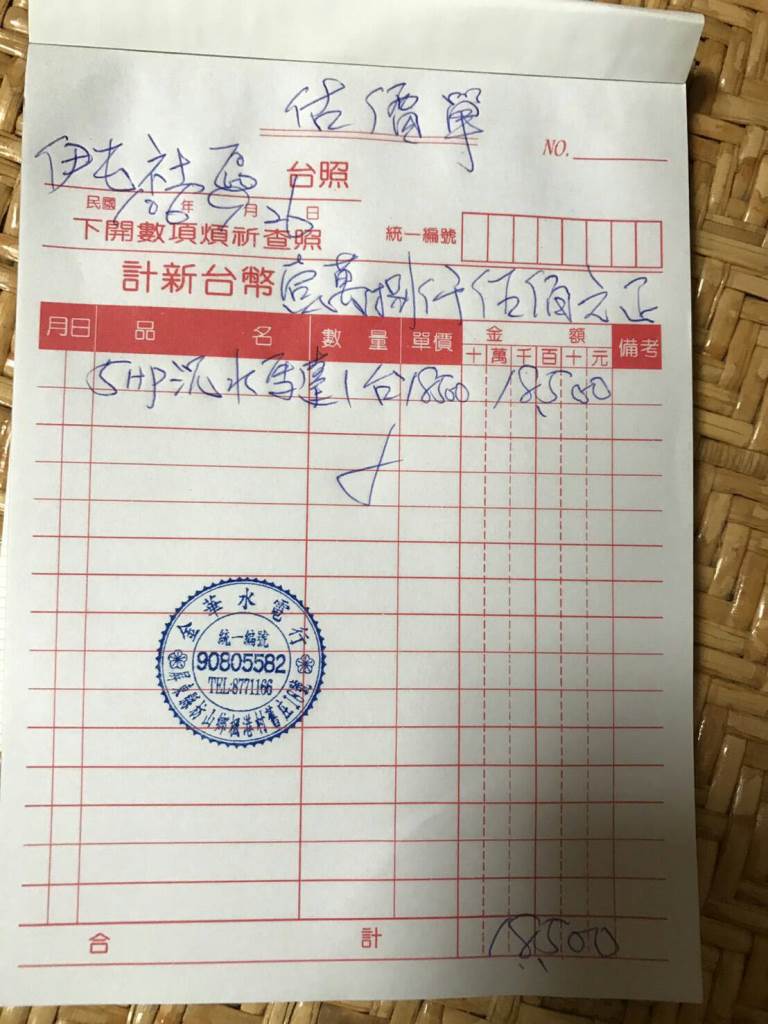 估價單
NO.
伊屯社區 台照
民國 106 年 9 月 26 日
下開數項煩祈查照
統一編號
計新台幣壹萬捌仟伍佰元正
月日 品名 數量 單價 金額 備考
十萬千百十元
5HP沉水馬達 1台 18500 18,500
金華水電行
統一編號
90805582
TEL:8771166
屏東縣枋山鄉楓港村舊庄
合計 18,500